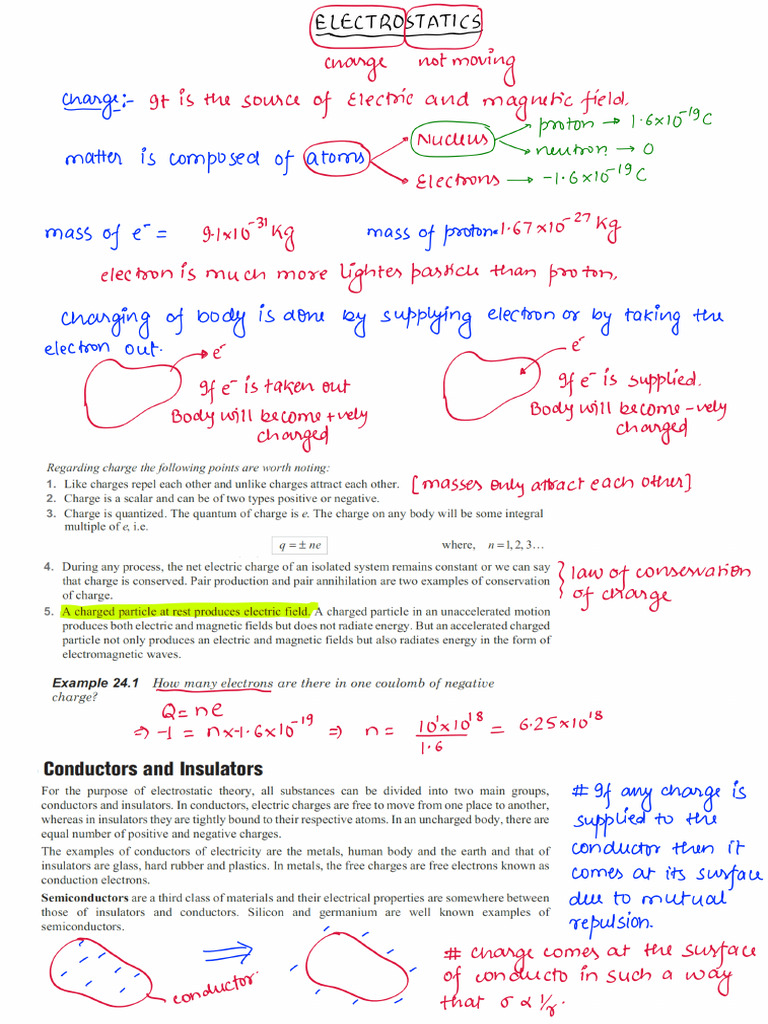 ELECTROSTATICS
charge not moving
charge:- It is the source of Electric and magnetic field.
matter is composed of atoms
Nucleus
proton → 1.6×10⁻¹⁹C
neutron → 0
Electrons → -1.6×10⁻¹⁹C
mass of e⁻ = 9.1×10⁻³¹ Kg mass of proton = 1.67×10⁻²⁷ Kg
electron is much more lighter particle than proton.
charging of body is done by supplying electron or by taking the
electron out.
e⁻
If e⁻ is taken out
Body will become +vely
charged
e⁻
If e⁻ is supplied.
Body will become -vely
charged
Regarding charge the following points are worth noting:
1. Like charges repel each other and unlike charges attract each other. [masses only attract each other]
2. Charge is a scalar and can be of two types positive or negative.
3. Charge is quantized. The quantum of charge is e. The charge on any body will be some integral
multiple of e, i.e.
q = ± ne where, n = 1, 2, 3…
4. During any process, the net electric charge of an isolated system remains constant or we can say
that charge is conserved. Pair production and pair annihilation are two examples of conservation
of charge.
} law of conservation
of charge
5. A charged particle at rest produces electric field. A charged particle in an unaccelerated motion
produces both electric and magnetic fields but does not radiate energy. But an accelerated charged
particle not only produces an electric and magnetic fields but also radiates energy in the form of
electromagnetic waves.
Example 24.1 How many electrons are there in one coulomb of negative
charge?
Q = ne
⇒ -1 = n×-1.6×10⁻¹⁹ ⇒ n = 10¹×10¹⁸/1.6 = 6.25×10¹⁸
Conductors and Insulators
For the purpose of electrostatic theory, all substances can be divided into two main groups,
conductors and insulators. In conductors, electric charges are free to move from one place to another,
whereas in insulators they are tightly bound to their respective atoms. In an uncharged body, there are
equal number of positive and negative charges.
The examples of conductors of electricity are the metals, human body and the earth and that of
insulators are glass, hard rubber and plastics. In metals, the free charges are free electrons known as
conduction electrons.
Semiconductors are a third class of materials and their electrical properties are somewhere between
those of insulators and conductors. Silicon and germanium are well known examples of
semiconductors.
# If any charge is
supplied to the
conductor then it
comes at its surface
due to mutual
repulsion.
conductor.
# charge comes at the surface
of conducto in such a way
that σ ∝ 1/r.